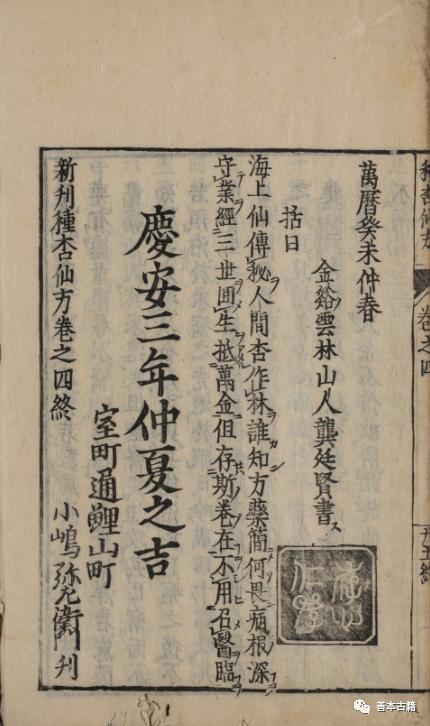 種杏仙方 卷之四
萬曆癸未仲春
金谿雲林山人龔廷賢書
括曰
海上仙傳秘人間杏作林誰知方藥簡何畏病根深
守業經三世囬生抵萬金但存斯卷在不用召醫臨
慶安三年仲夏之吉
室町通鯉山町
新刊種杏仙方卷之四終 小嶋弥左衛門刊
善本古籍